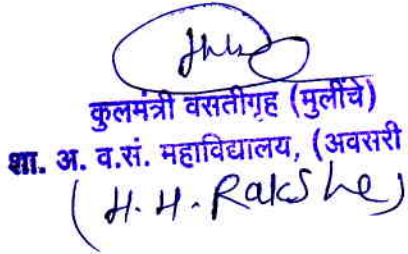 कुलमंत्री वसतीगृह (मुलींचे)
शा. अ. व.सं. महाविद्यालय, (अवसरी
(H.H. Rakshe)